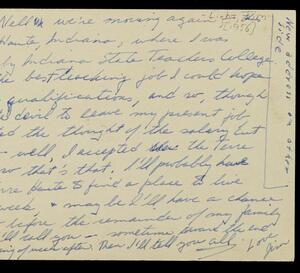 Well we're moving again
[1956]
Haute, Indiana, where I was
by Indiana State Teachers College
the best teaching job I could hope
qualifications, and so, though
devil to leave my present job,
the thought of the salary cut
– well, I accepted the Terre
so that's that. I'll probably have
Haute to find a place to live
week & maybe I'll have a chance
before the remainder of my family
I'll tell you – sometime around the end
of week after. Then I'll tell you all.
Love
Jim
New address on other
side